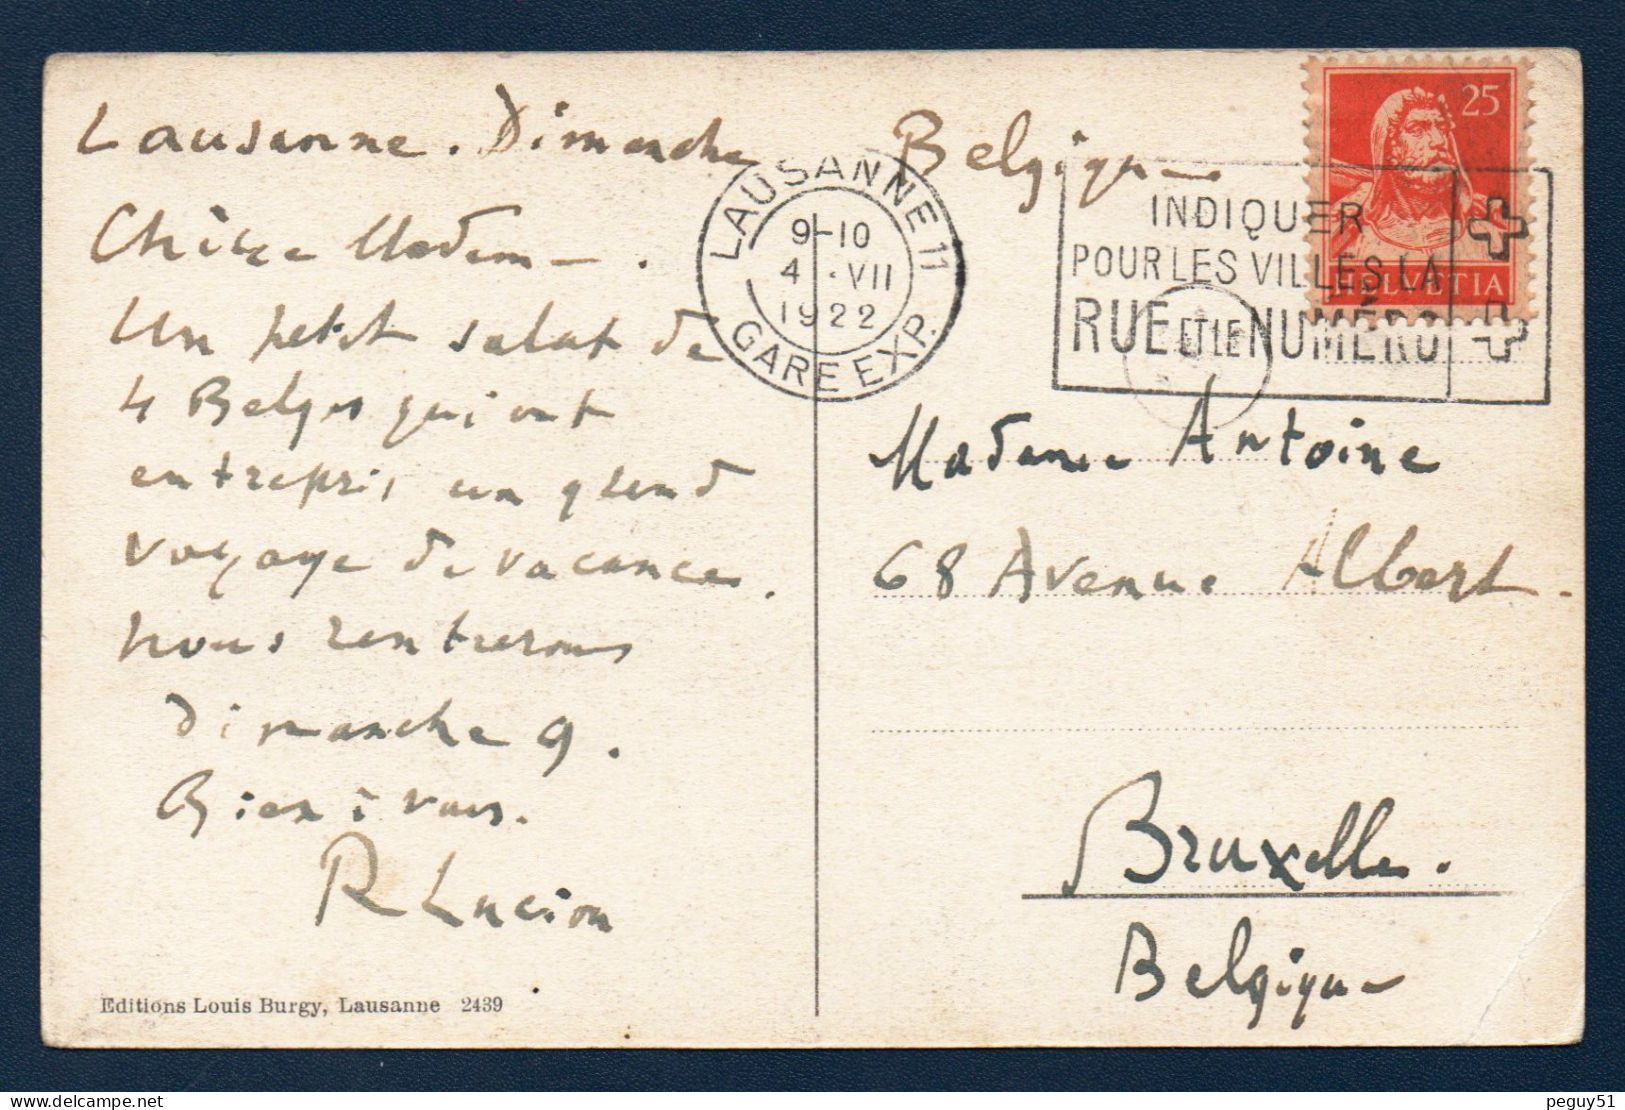 Lausanne. Dimanche
Chère Madame.
Un petit salut de
4 Belges qui ont
entrepris un grand
voyage de vacances.
Nous rentrerons
dimanche 9.
Bien à vous.
R Lucion
Editions Louis Burgy, Lausanne 2439
LAUSANNE 11
9-10
4. VII
1922
GARE EXP.
Belgique
25
HELVETIA
INDIQUER
POUR LES VILLES LA
RUE ET LE NUMÉRO
Madame Antoine
68 Avenue Albert.
Bruxelles.
Belgique
peguy51